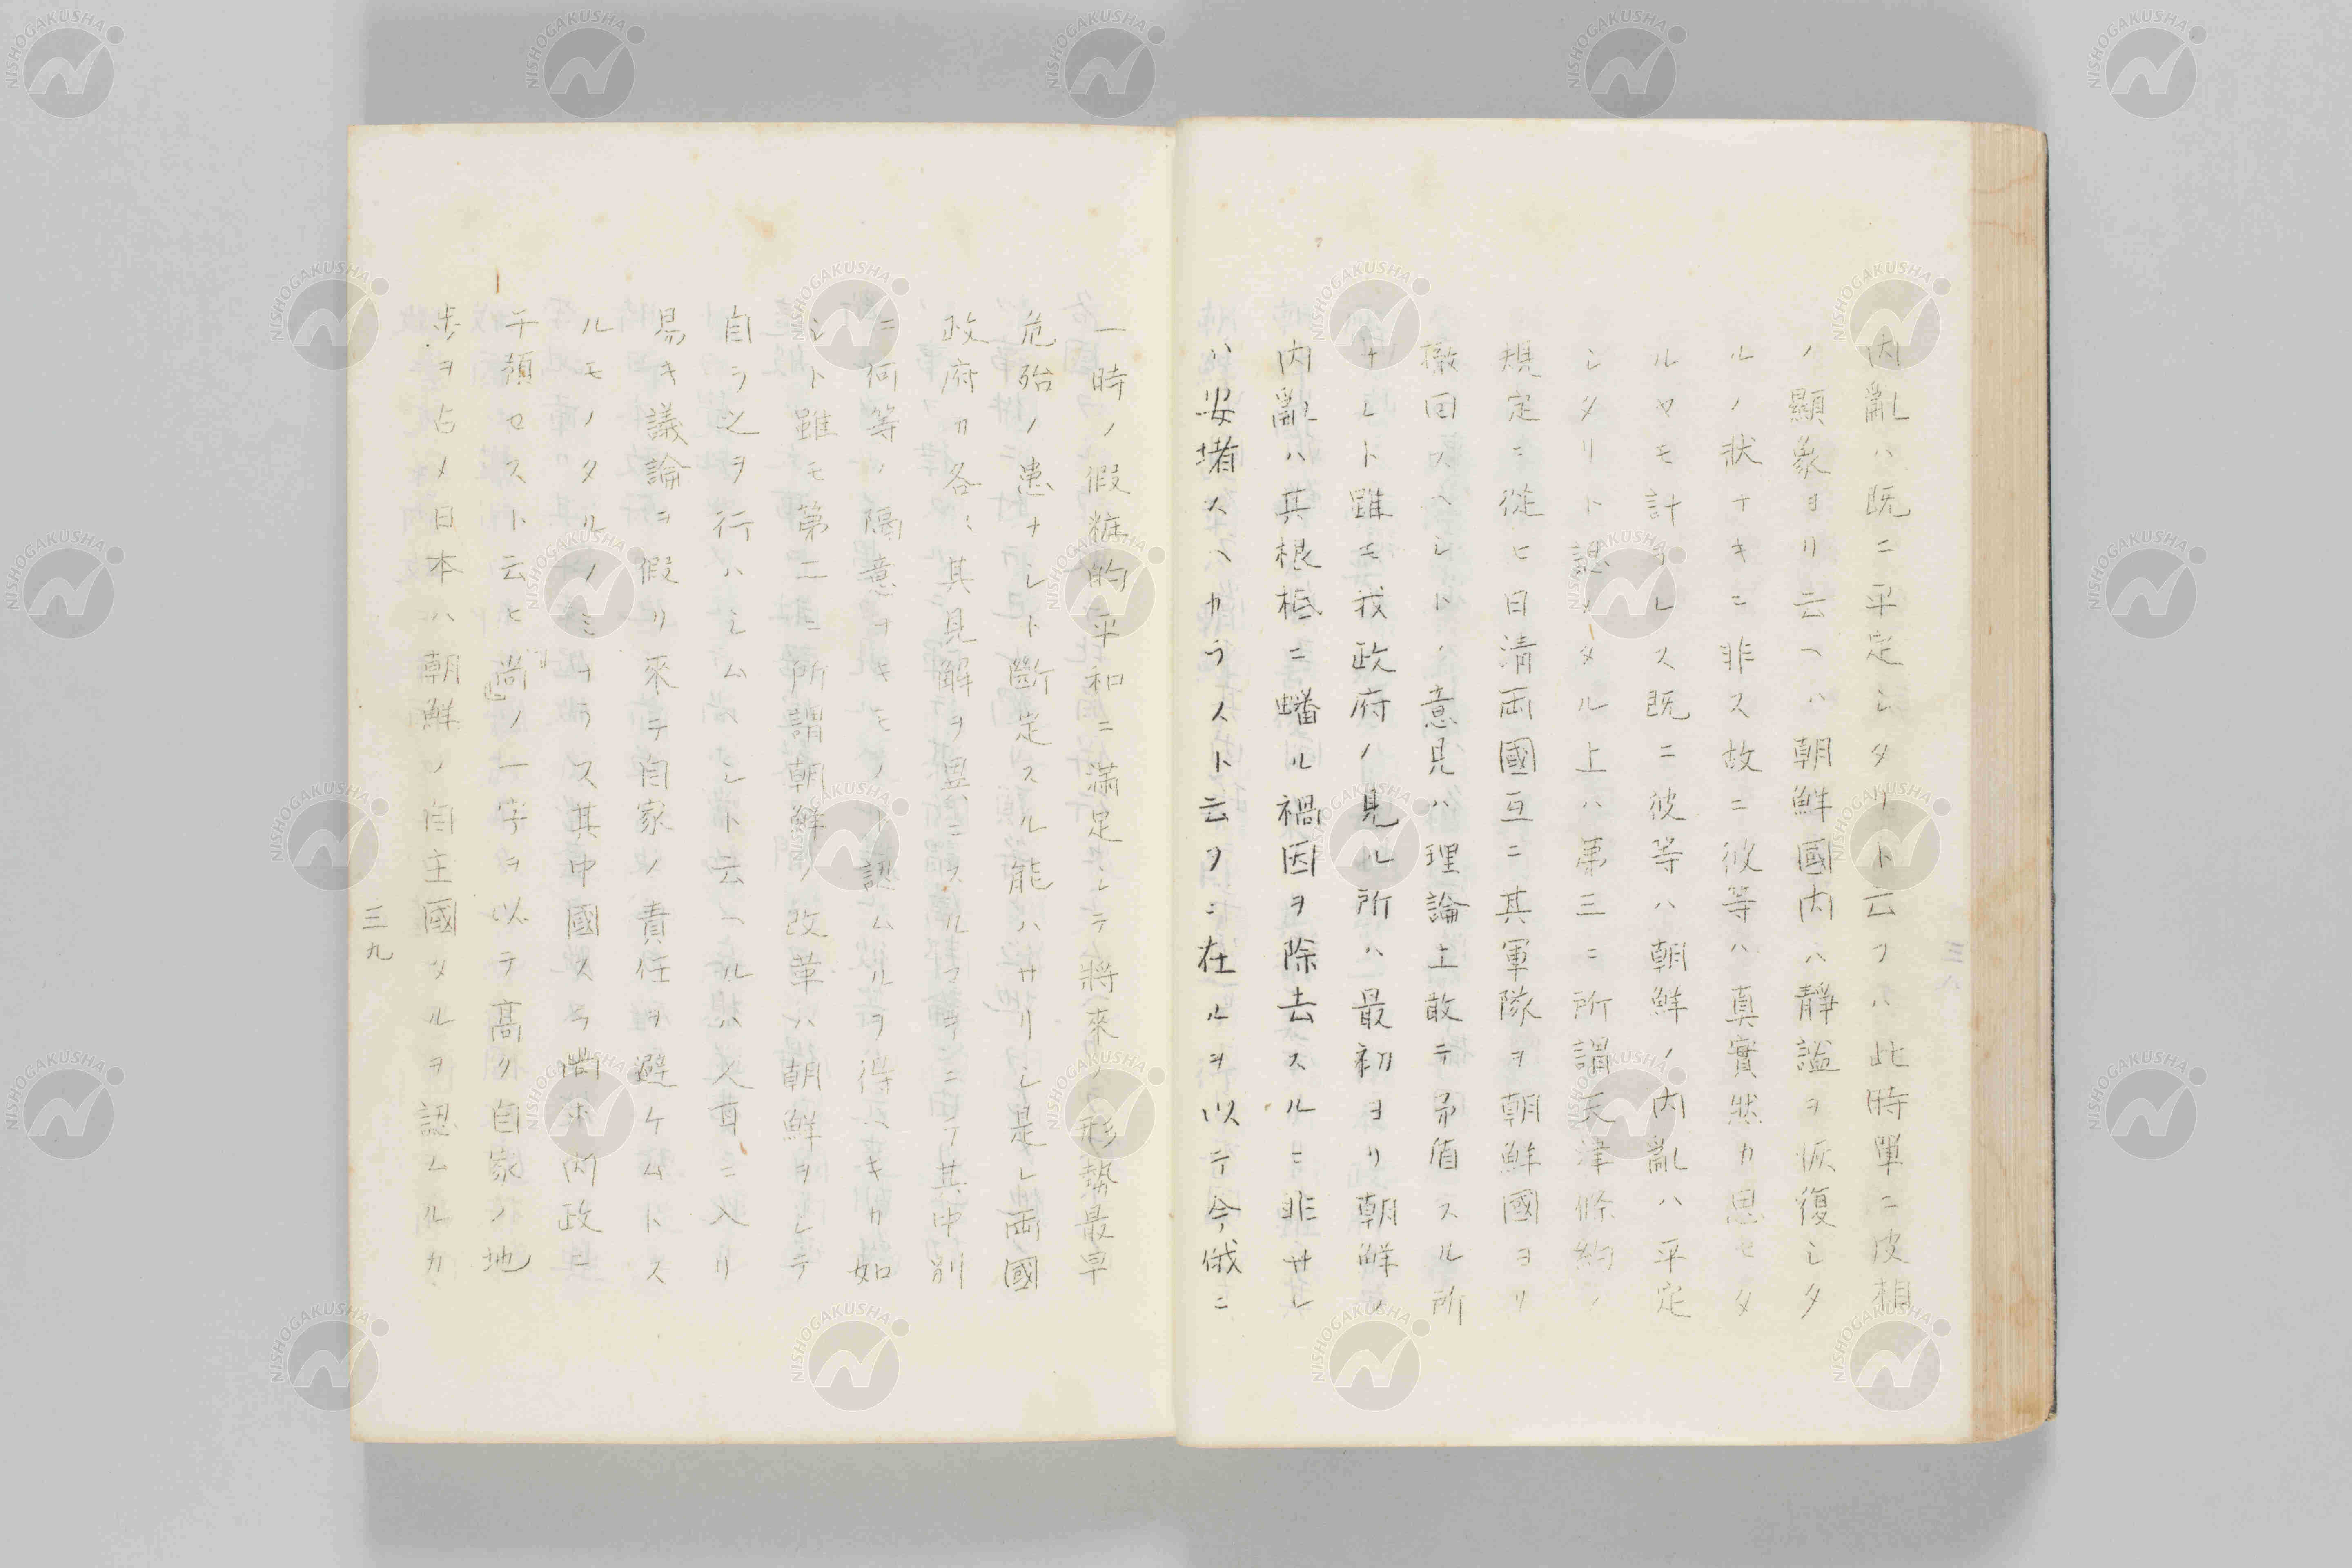 内亂ハ既ニ平定シタリト云フハ此時單ニ皮相
ノ顯象ヨリ云ヘハ朝鮮國内ハ靜謐ヲ恢復シタ
ルノ狀ナキニ非ス故ニ彼等ハ真實然カ思セタ
ルヤモ計ラレス既ニ彼等ハ朝鮮ノ内亂ハ平定
シタリト認メタル上ハ第三ニ所謂天津條約ノ
規定ニ從ヒ日清両國互ニ其軍隊ヲ朝鮮國ヨリ
撤回スヘシトノ意見ハ理論上敢テ矛盾スル所
ナシト雖モ我政府ノ見ル所ハ最初ヨリ朝鮮ノ
内亂ハ其根柢ニ蟠ル禍因ヲ除去スルニ非サレ
ハ安堵スヘカラスト云フニ在ルヲ以テ今俄ニ
一時ノ假粧的平和ニ滿足シテ將來ノ形勢最早
危殆ノ患ナシト斷定スル能ハサリシ是レ両國
政府カ各々其見解ヲ異ニスル
其中別
ニ何等ノ隔意ナキモノト認ムルヲ得ヘキカ如
シト雖モ第二ニ所謂朝鮮ノ改革ハ朝鮮ヲシテ
自ラ之ヲ行ハシムヘシト云ヘルハ人耳ニ入リ
易キ議論ヲ假リ來テ自家ノ責任ヲ避ケムトス
ルモノタルノミナラス其中國スラ尚ホ内政ニ
干預セスト云ヒ尚ノ一字ヲ以テ髙ク自家ノ地
步ヲ占メ日本ハ朝鮮ノ自主國タルヲ認ムルカ
三九
三八
NISHOGAKUSHA